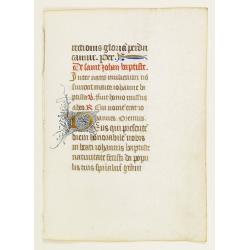 rectionis gloria perdu
camur. Per.
De saint Jehan baptiste.
Inter natos mulierum no
surrexit maior iohanne ba
ptista V. fuit homo missus
a deo R. Cui nomen erat io
hannes. Oremus.
Deus qui presente
diem honorabile nobis
in beati iohannis baptiste
nativitate fecisti da popu
lis tuis spiritualium gratiam